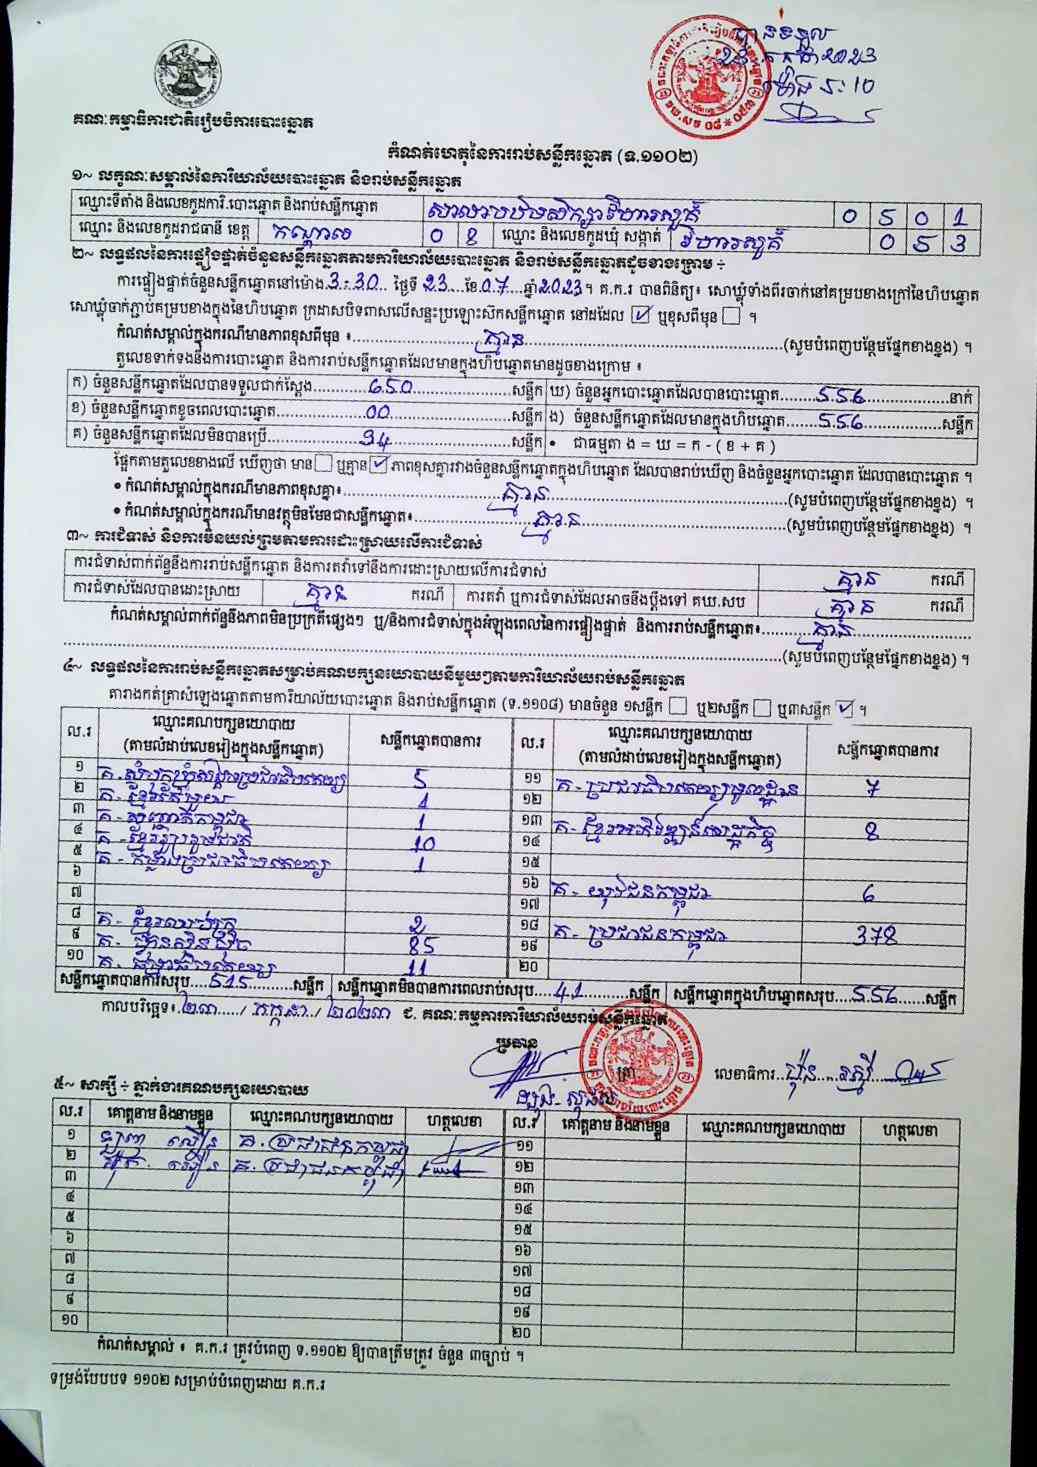 បានទទួល
23 កក្កដា 2023
គណៈកម្មាធិការជាតិរៀបចំការបោះឆ្នោត
កំណត់ហេតុនៃការរាប់សន្លឹកឆ្នោត (ទ.១១០២)
១~ លក្ខណៈសម្គាល់នៃការិយាល័យបោះឆ្នោត និងរាប់សន្លឹកឆ្នោត
ឈ្មោះទីតាំង និងលេខកូដការិ.បោះឆ្នោត និងរាប់សន្លឹកឆ្នោត សាលាបឋមសិក្សាវិហារសួគ៌ 0 5 0 1
ឈ្មោះ និងលេខកូដរាជធានី ខេត្ត កណ្តាល 0 8 ឈ្មោះ និងលេខកូដឃុំ សង្កាត់ វិហារសួគ៌ 0 5 3
២~ លទ្ធផលនៃការផ្ទៀងផ្ទាត់ចំនួនសន្លឹកឆ្នោតតាមការិយាល័យបោះឆ្នោត និងរាប់សន្លឹកឆ្នោតដូចខាងក្រោម ÷
ការផ្ទៀងផ្ទាត់ចំនួនសន្លឹកឆ្នោតនៅម៉ោង 3:30 ថ្ងៃទី 23 ខែ 07 ឆ្នាំ 2023 ។ គ.ក.រ បានពិនិត្យ៖ សោឃ្លុំទាំងពីរចាក់នៅគម្របខាងក្រៅនៃហិបឆ្នោត
សោឃ្លុំចាក់ភ្ជាប់គម្របខាងក្នុងនៃហិបឆ្នោត ក្រដាសបិទពាសលើសន្ទះប្រឡោះសឹកសន្លឹកឆ្នោត នៅដដែល ☑ ឬខុសពីមុន ☐ ។
កំណត់សម្គាល់ក្នុងករណីមានភាពខុសពីមុន ៖ គ្មាន (សូមបំពេញបន្ថែមផ្នែកខាងខ្នង) ។
តួលេខទាក់ទងនឹងការបោះឆ្នោត និងការរាប់សន្លឹកឆ្នោតដែលមានក្នុងហិបឆ្នោតមានដូចខាងក្រោម ៖
ក) ចំនួនសន្លឹកឆ្នោតដែលបានទទួលជាក់ស្តែង 650 សន្លឹក ឃ) ចំនួនអ្នកបោះឆ្នោតដែលបានបោះឆ្នោត 556 នាក់
ខ) ចំនួនសន្លឹកឆ្នោតខូចពេលបោះឆ្នោត 00 សន្លឹក ង) ចំនួនសន្លឹកឆ្នោតដែលមានក្នុងហិបឆ្នោត 556 សន្លឹក
គ) ចំនួនសន្លឹកឆ្នោតដែលមិនបានប្រើ 94 សន្លឹក • ជាធម្មតា ង = ឃ = ក - ( ខ + គ )
ផ្អែកតាមតួលេខខាងលើ ឃើញថា មាន ☐ ឬគ្មាន ☑ ភាពខុសគ្នារវាងចំនួនសន្លឹកឆ្នោតក្នុងហិបឆ្នោត ដែលបានរាប់ឃើញ និងចំនួនអ្នកបោះឆ្នោត ដែលបានបោះឆ្នោត ។
• កំណត់សម្គាល់ក្នុងករណីមានភាពខុសគ្នា៖ គ្មាន (សូមបំពេញបន្ថែមផ្នែកខាងខ្នង) ។
• កំណត់សម្គាល់ក្នុងករណីមានវត្ថុមិនមែនជាសន្លឹកឆ្នោត៖ គ្មាន (សូមបំពេញបន្ថែមផ្នែកខាងខ្នង) ។
៣~ ការជំទាស់ និងការមិនយល់ព្រមតាមការដោះស្រាយលើការជំទាស់
ការជំទាស់ពាក់ព័ន្ធនឹងការរាប់សន្លឹកឆ្នោត និងការតវ៉ាទៅនឹងការដោះស្រាយលើការជំទាស់ គ្មាន ករណី
ការជំទាស់ដែលបានដោះស្រាយ គ្មាន ករណី ការតវ៉ា ឬការជំទាស់ដែលអាចនឹងប្តឹងទៅ គឃ.សប គ្មាន ករណី
កំណត់សម្គាល់ពាក់ព័ន្ធនឹងភាពមិនប្រក្រតីផ្សេងៗ ឬ/និងការជំទាស់ក្នុងអំឡុងពេលនៃការផ្ទៀងផ្ទាត់ និងការរាប់សន្លឹកឆ្នោត៖ គ្មាន
(សូមបំពេញបន្ថែមផ្នែកខាងខ្នង) ។
៤~ លទ្ធផលនៃការរាប់សន្លឹកឆ្នោតសម្រាប់គណបក្សនយោបាយនីមួយៗតាមការិយាល័យរាប់សន្លឹកឆ្នោត
តារាងកត់ត្រាសំឡេងឆ្នោតតាមការិយាល័យបោះឆ្នោត និងរាប់សន្លឹកឆ្នោត (ទ.១១០៨) មានចំនួន ១សន្លឹក ☐ ឬ២សន្លឹក ☐ ឬ៣សន្លឹក ☑ ។
ល.រ ឈ្មោះគណបក្សនយោបាយ សន្លឹកឆ្នោតបានការ ល.រ ឈ្មោះគណបក្សនយោបាយ សន្លឹកឆ្នោតបានការ
(តាមលំដាប់លេខរៀងក្នុងសន្លឹកឆ្នោត) (តាមលំដាប់លេខរៀងក្នុងសន្លឹកឆ្នោត)
១ គ.សំបុកឃ្មុំសង្គមប្រជាធិបតេយ្យ 5 ១១ គ.ប្រជាធិបតេយ្យមូលដ្ឋាន 7
២ គ.ខ្មែរតែមួយ 1 ១២
៣ គ.សញ្ជាតិកម្ពុជា 1 ១៣ គ.ខ្មែរអភិវឌ្ឍន៍សេដ្ឋកិច្ច 8
៤ គ.ខ្មែររួបរួមជាតិ 10 ១៤
៥ គ.កម្លាំងប្រជាធិបតេយ្យ 1 ១៥
៦ ១៦ គ.យុវជនកម្ពុជា 6
៧ ១៧
៨ គ.ខ្មែរឈប់ក្រ 2 ១៨ គ.ប្រជាជនកម្ពុជា 378
៩ គ.ហ្វ៊ុនស៊ិនប៉ិច 85 ១៩
១០ គ.ធម្មាធិបតេយ្យ 11 ២០
សន្លឹកឆ្នោតបានការសរុប 515 សន្លឹក សន្លឹកឆ្នោតមិនបានការពេលរាប់សរុប 41 សន្លឹក សន្លឹកឆ្នោតក្នុងហិបឆ្នោតសរុប 556 សន្លឹក
កាលបរិច្ឆេទ៖ ២៣ / កក្កដា / ២០២៣ ជ. គណៈកម្មការការិយាល័យរាប់សន្លឹកឆ្នោត
ប្រធាន
ត្រា លេខាធិការ
៥~ សាក្សី ÷ ភ្នាក់ងារគណបក្សនយោបាយ
ល.រ គោត្តនាម និងនាមខ្លួន ឈ្មោះគណបក្សនយោបាយ ហត្ថលេខា ល.រ គោត្តនាម និងនាមខ្លួន ឈ្មោះគណបក្សនយោបាយ ហត្ថលេខា
១ គ.ប្រជាជនកម្ពុជា ១១
២ គ.ប្រជាជនកម្ពុជា ១២
៣ ១៣
៤ ១៤
៥ ១៥
៦ ១៦
៧ ១៧
៨ ១៨
៩ ១៩
១០ ២០
កំណត់សម្គាល់ ៖ គ.ក.រ ត្រូវបំពេញ ទ.១១០២ ឱ្យបានត្រឹមត្រូវ ចំនួន ៣ច្បាប់ ។
ទម្រង់បែបបទ ១១០២ សម្រាប់បំពេញដោយ គ.ក.រ